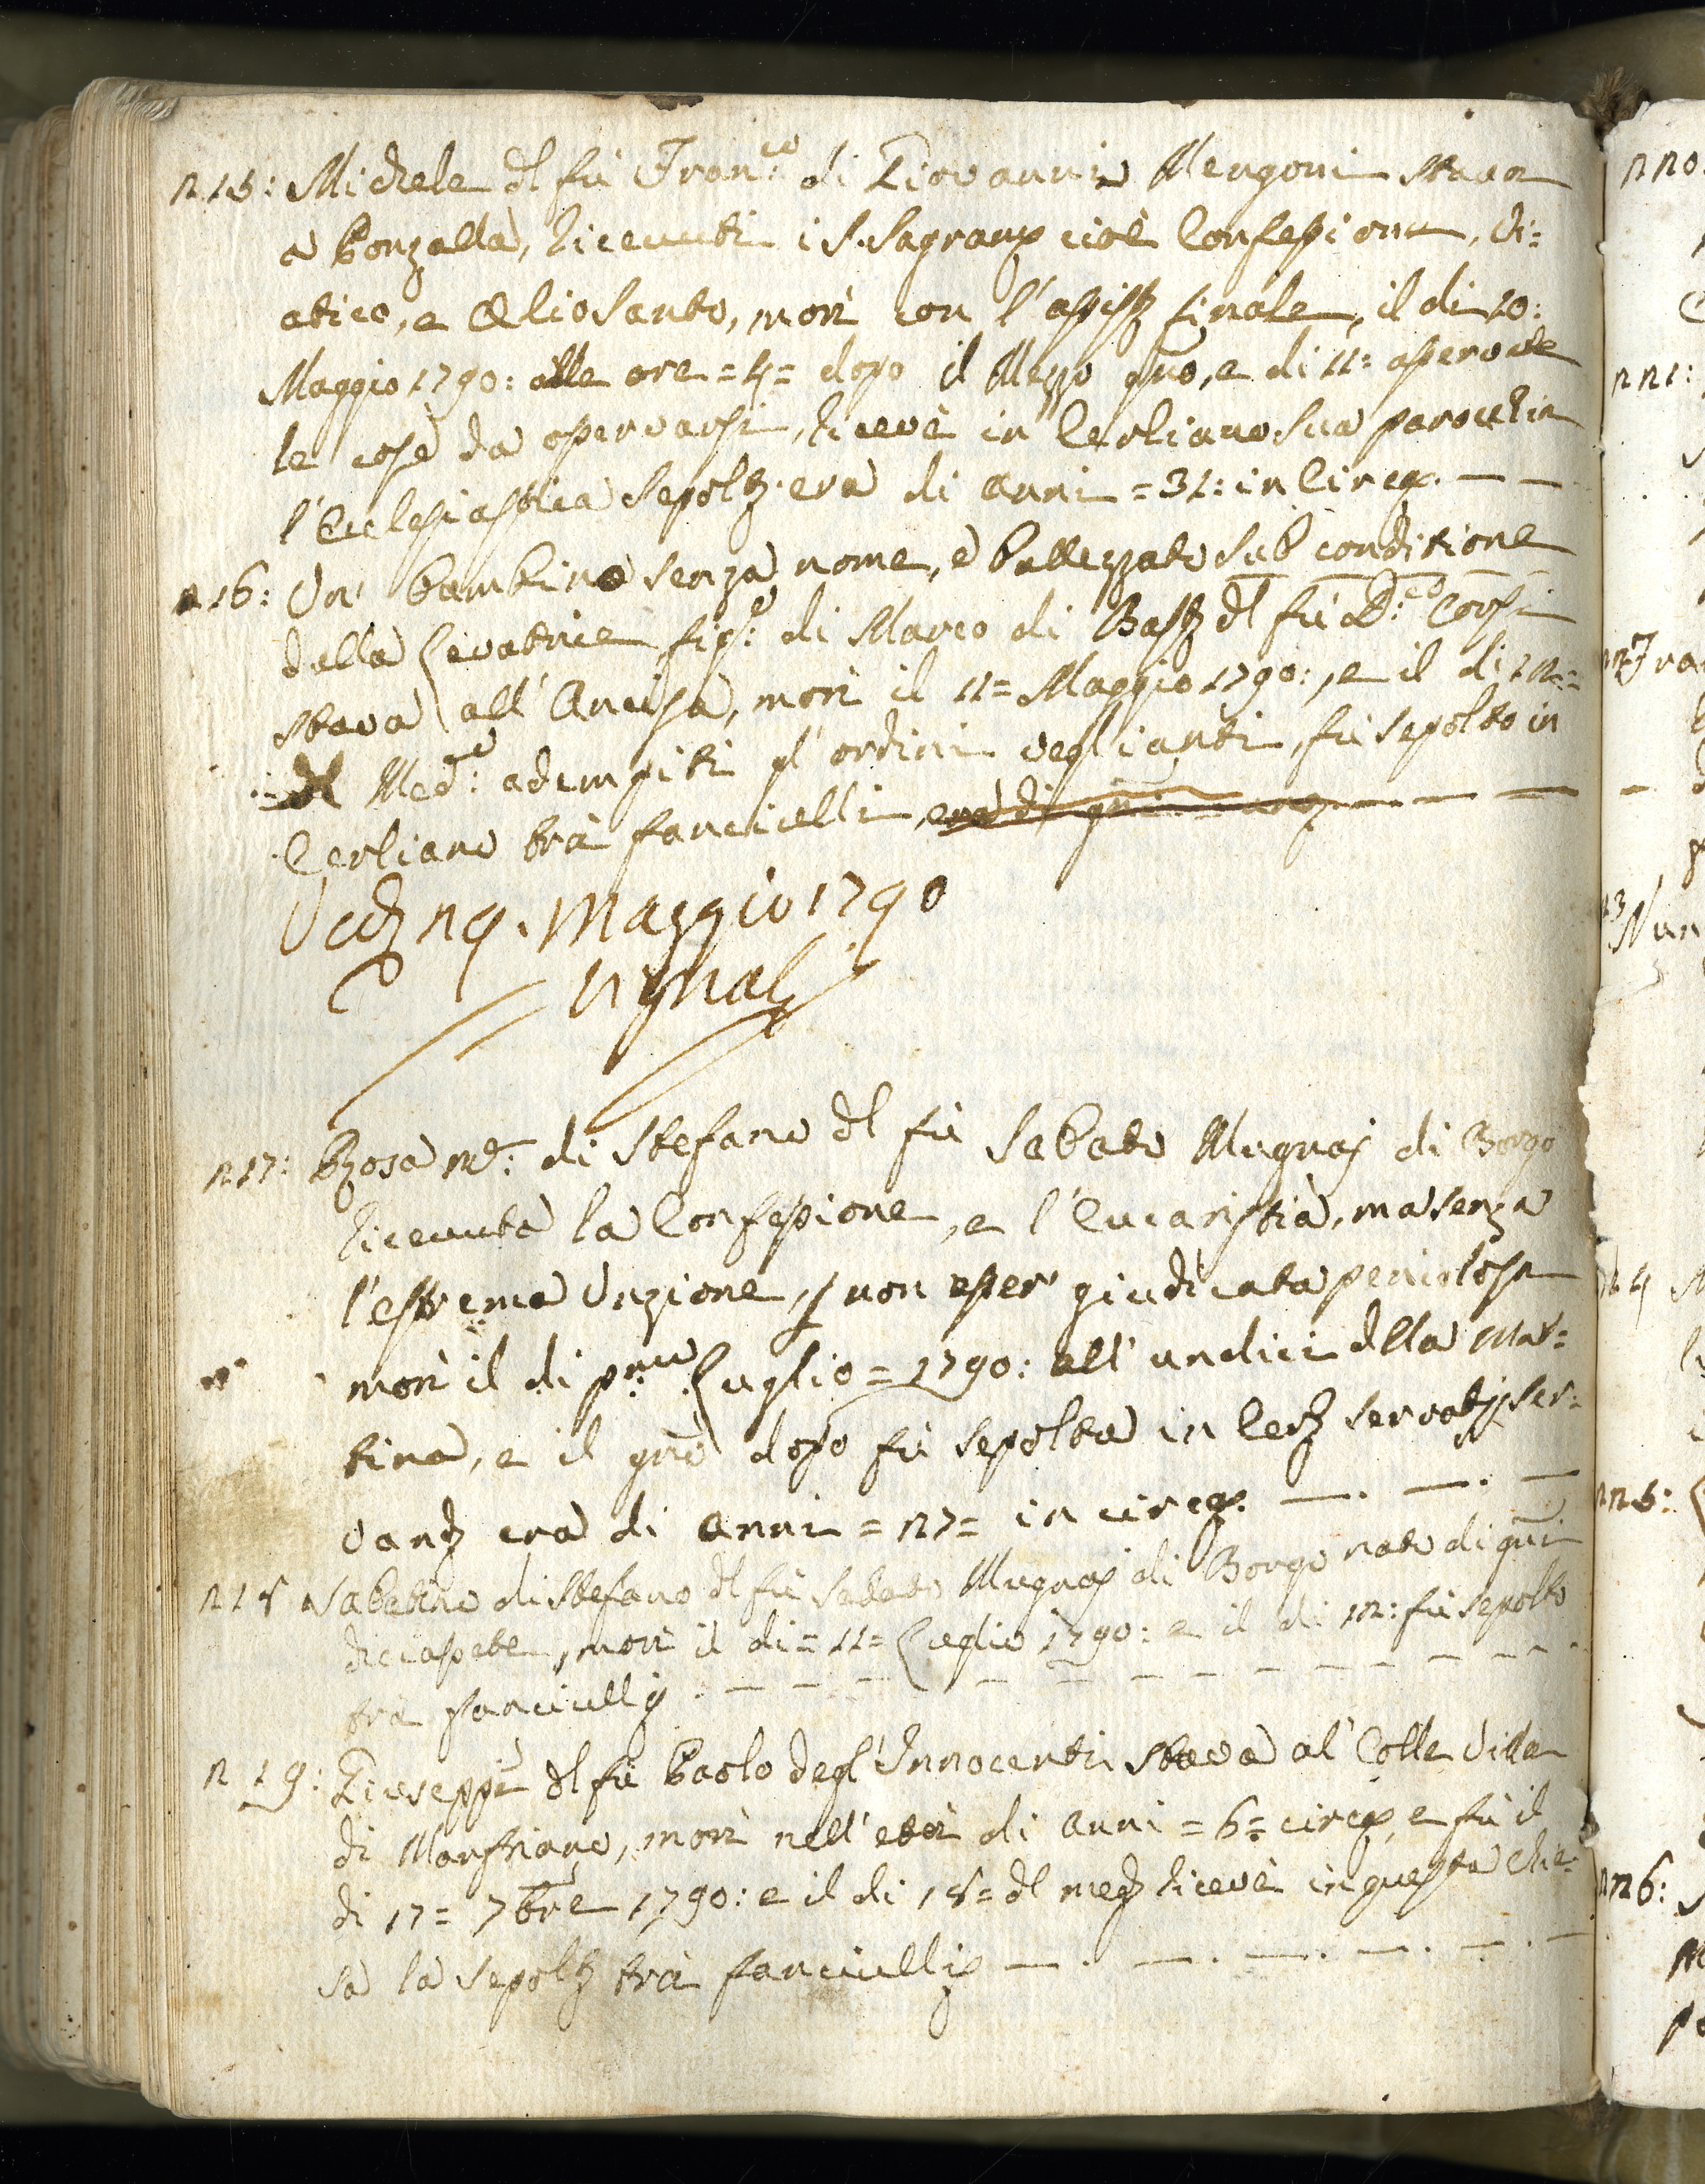 n 15: Michele dl fù Fran:co di Giovanni Mengoni stava
a Ronzalla, ricevuti i S. Sagram cioè Confessione, Vi=
atico, e Oliosanto, morì con l'assist finale, il di 10:
Maggio 1790: alle ore = 4 = dopo il Mezzo gno, e di 11: asservate
le cose da osservarsi, ricevè in Cerliano sua parochia
l'Ecclesiastica Sepolt. era di anni = 31: in Circa. — —
n 16: Un' bambino senza nome, e battezzato sub conditione
dalla Levatrice fig:o di Marco di Bast dl fù D:co Corsi
stava all' Ancisa, morì il 11 = Maggio 1790:, e il di 12 =
dl Med:o adempiti gl' ordini veglianti, fù sepolto in
Cerliano trà fanciulli, era di gni
24. Maggio 1790
n 17: Rosa M:e di Stefano dl fù Sabato Mugnaj di Borgo
ricevuta la Confessione, e l'Eucaristia, ma senza
l'estrema Unzione, p non esser' giudicata pericolosa
morì il di pmo Luglio = 1790: all' undici dlla Mat=
tina, e il gno dopo fù sepolta in Cerl servatis ser=
vand era di anni = 27 = in circa. — . — . —
n 18 Sabatino di Stefano dl fù Sabato Mugnaj di Borgo nato di gni
diciasette, morì il di = 11 = Luglio 1790: e il di 12: fù sepolto
trà fanciulli . — — — — — — — — — —
n 19: Giuseppe dl fù Paolo degl' Innocenti stava al' Colle Villa
di Manfriano, morì nell' età di anni = 6 = circa, e fù il
di 17 = 7bre 1790: e il di 18 = dl med ricevè in questa Chie=
sa la sepolt trà fanciulli — . — . — . — . — . —